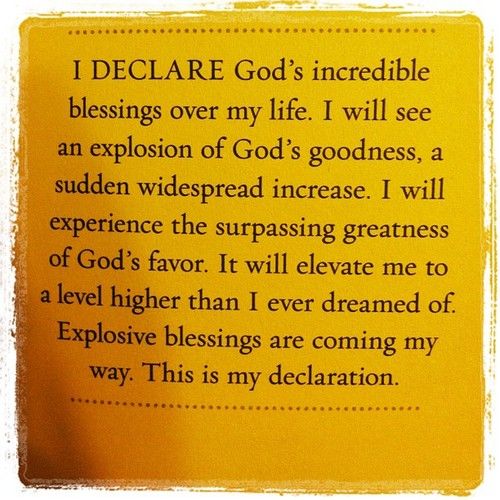 I DECLARE God's incredible
blessings over my life. I will see
an explosion of God's goodness, a
sudden widespread increase. I will
experience the surpassing greatness
of God's favor. It will elevate me to
a level higher than I ever dreamed of.
Explosive blessings are coming my
way. This is my declaration.